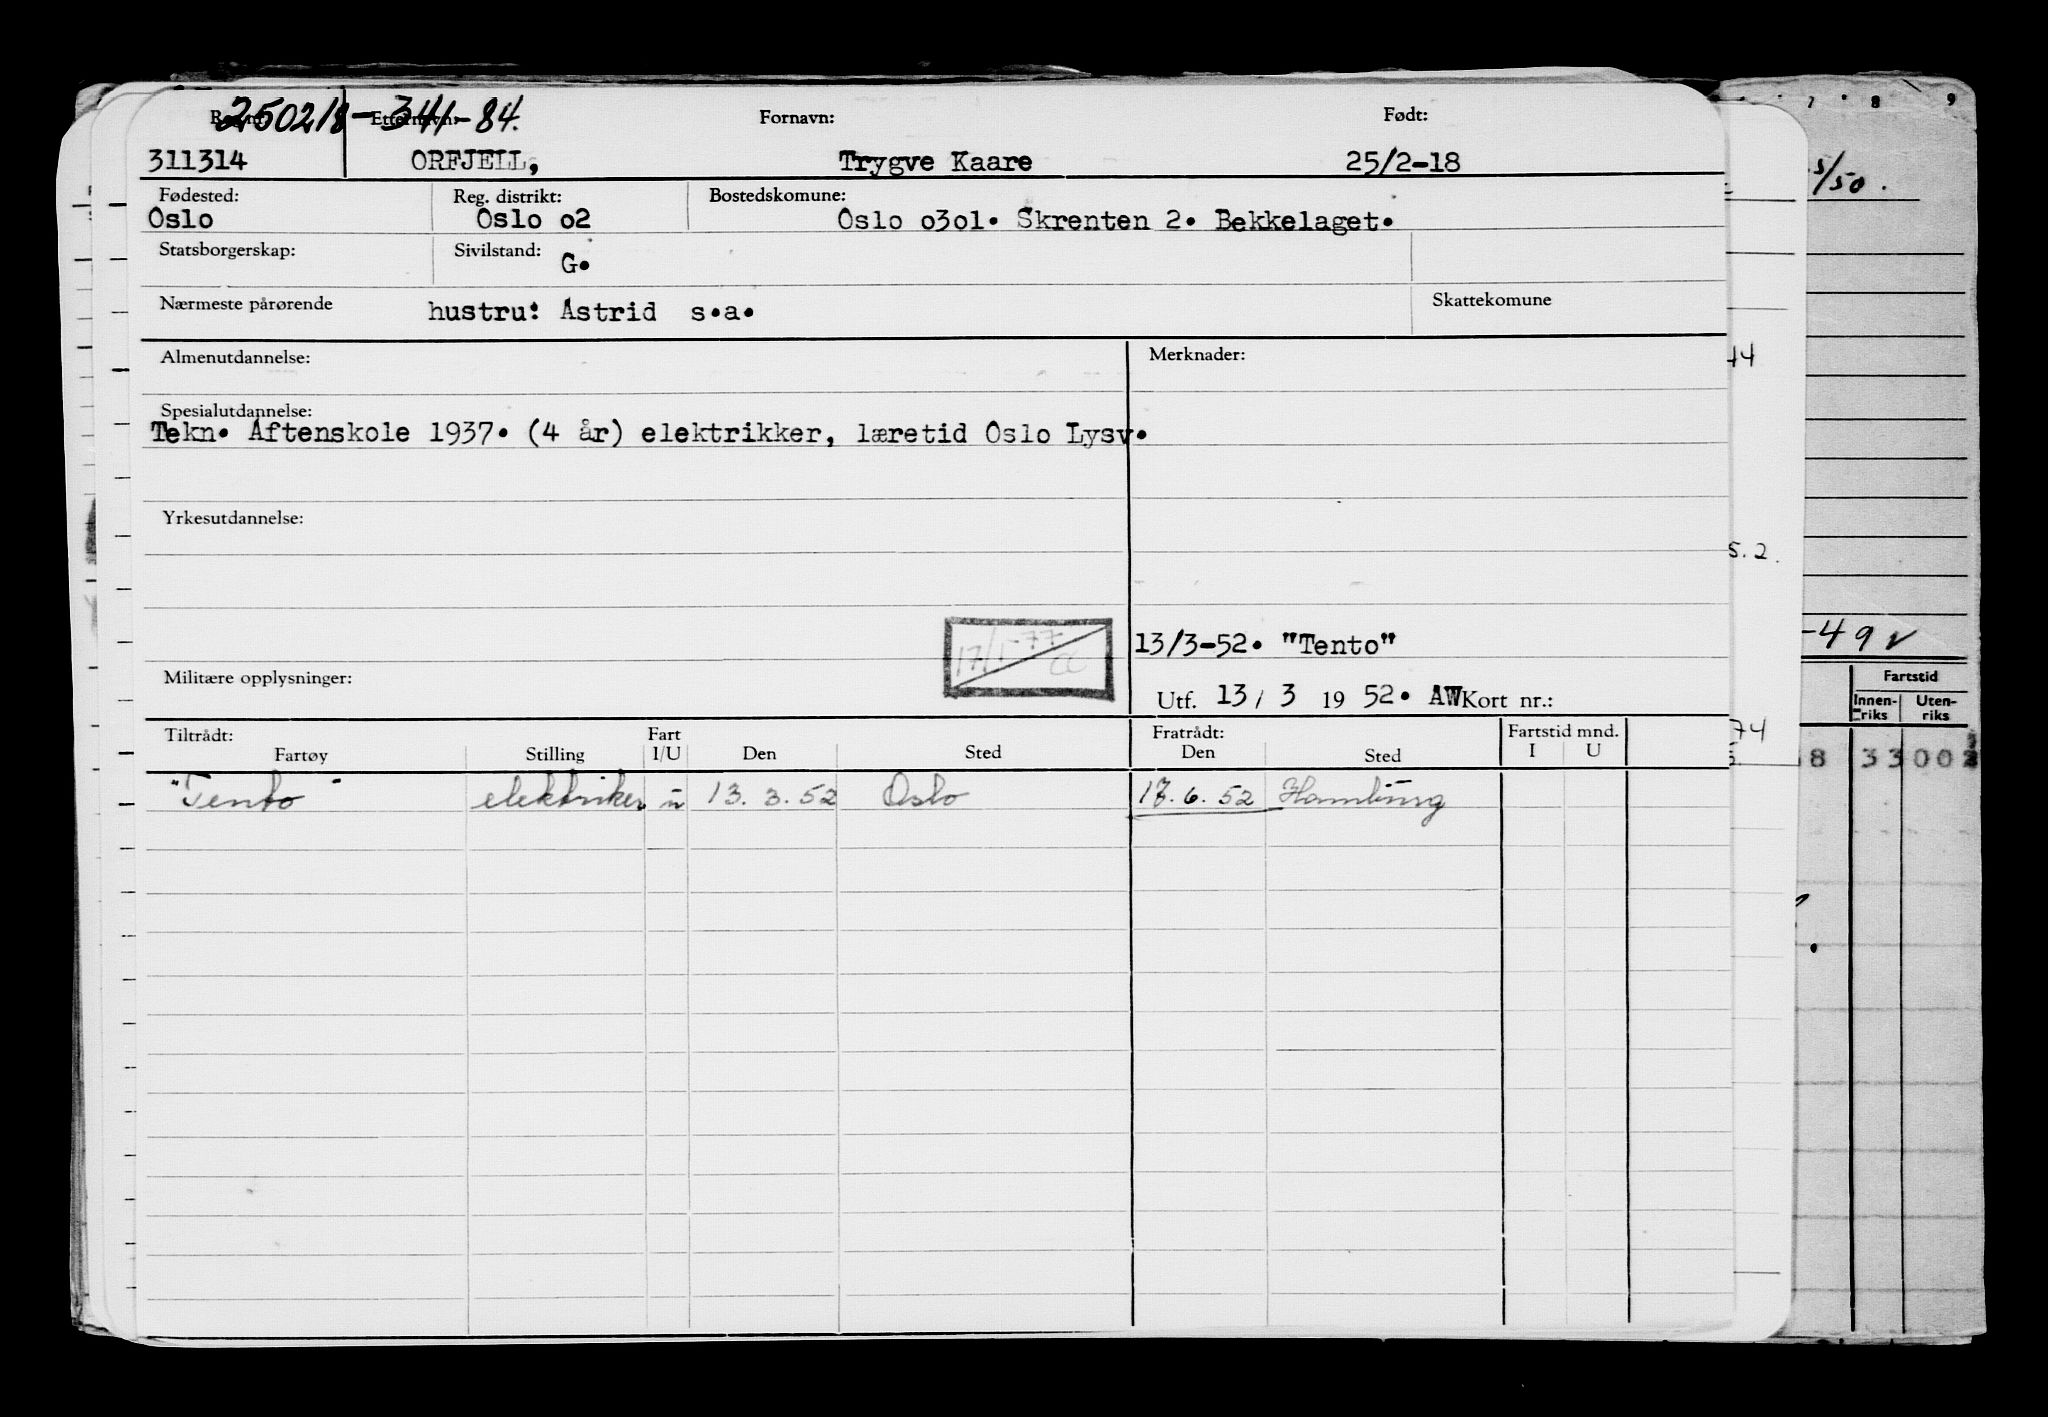 250218-341-84.
Reg.nr. Etternavn: Fornavn: Født:
311314 ORFJELL, Trygve Kaare 25/2-18
Fødested: Reg. distrikt: Bostedskomune:
Oslo Oslo o2 Oslo o3o1. Skrenten 2. Bekkelaget.
Statsborgerskap: Sivilstand: G.
Nærmeste pårørende hustru: Astrid s.a. Skattekomune
Almenutdannelse: Merknader:
Spesialutdannelse:
Tekn. Aftenskole 1937. (4 år) elektrikker, læretid Oslo Lysv.
Yrkesutdannelse:
17/1-77
13/3-52. "Tento"
Militære opplysninger:
Utf. 13 / 3 19 52. AW Kort nr.:
Tiltrådt: Fart Fratrådt: Fartstid mnd.
Fartøy Stilling I/U Den Sted Den Sted I U
"Tento" elektriker u 13. 3. 52 Oslo 17. 6. 52 Hamburg
7 8 9
5/50.
44
5.2.
-49
Fartstid
Innen-riks Uten-riks
74
8 33 00